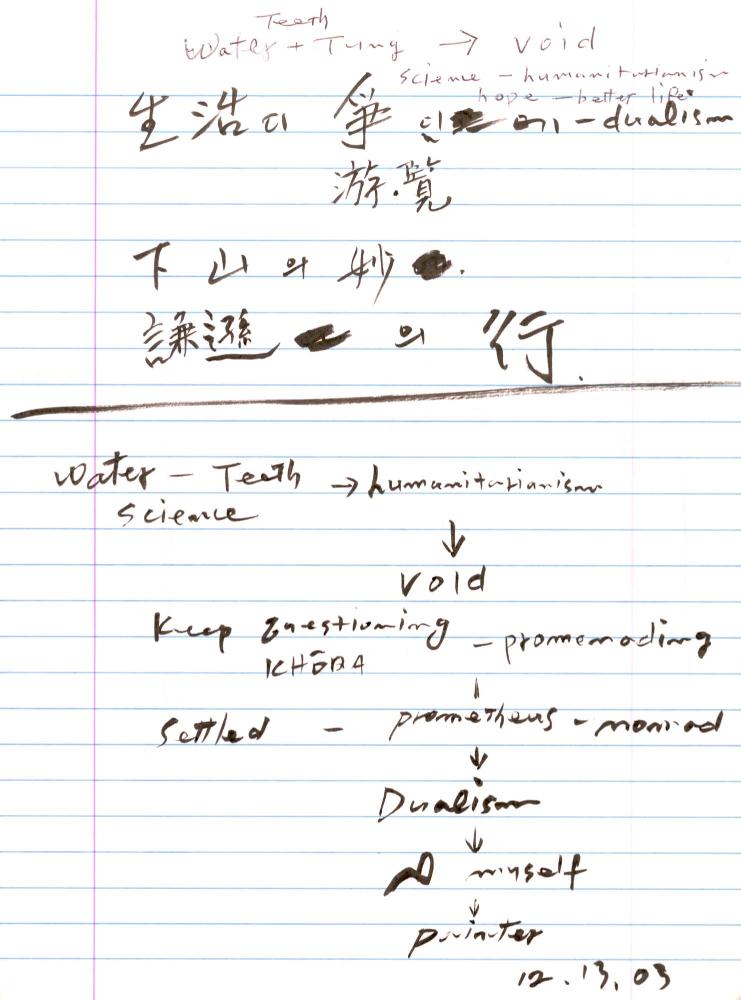 Teeth
Water + Tung → void
science - humanitarianism
hope - better life
生 浩 爭 - dualism
游.覧
下 山 의 妙 .
謙遜 의 行.
Water - Teeth → humanitarianism
science
↓
Void
Keep questioning - promenading
KHŌRA
Settled - prometheus - nomad
↓
Dualism
↓
myself
↓
painter
12.13.03